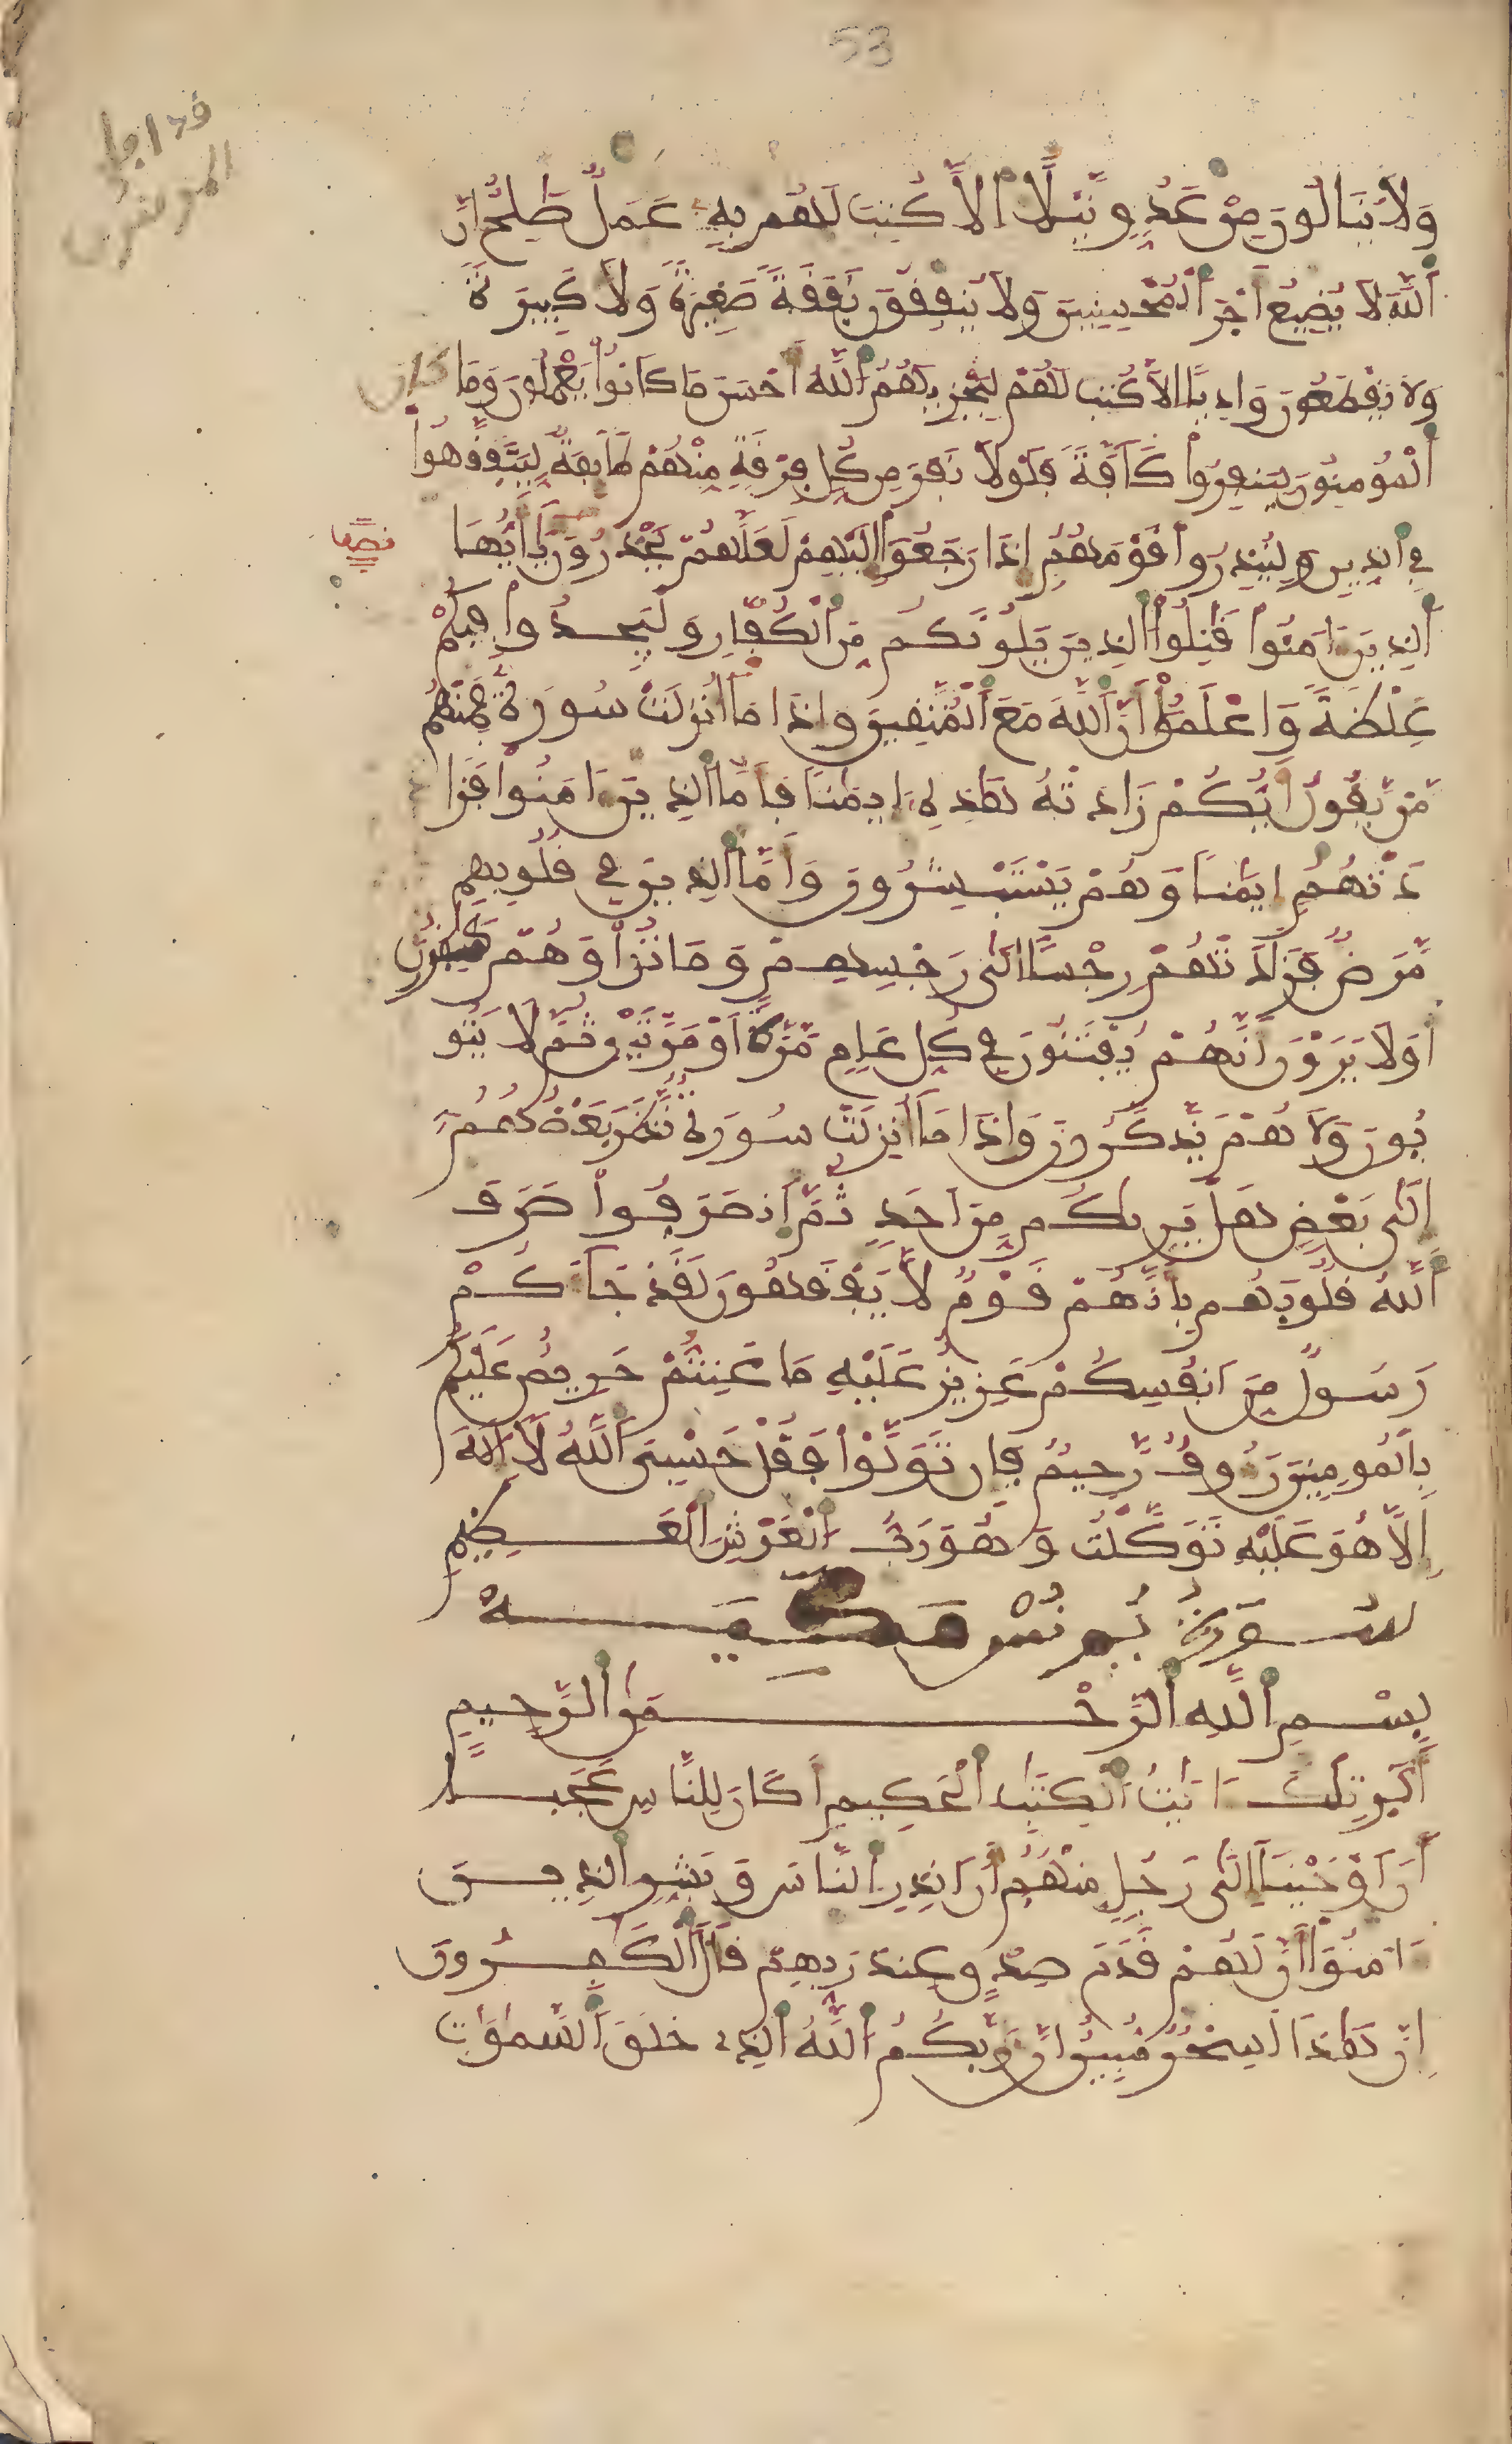 53
وَلَا يَنَالُونَ مِنْ عَدُوٍّ نَّيْلًا اِلَّا كُتِبَ لَهُم بِهِ عَمَلٌ صَٰلِحٌ اِنَّ
اَللَّهَ لَا يُضِيعُ أَجْرَ اَلْمُحْسِنِينَ وَلَا يُنفِقُونَ نَفَقَةً صَغِيرَةً وَلَا كَبِيرَةً
وَلَا يَقْطَعُونَ وَادِيًا اِلَّا كُتِبَ لَهُمْ لِيَجْزِيَهُمُ اُللَّهُ أَحْسَنَ مَا كَانُواْ يَعْمَلُونَ وَمَا كان
اَلْمُومِنُونَ لِيَنفِرُواْ كَآفَّةً فَلَوْلَا نَفَرَ مِن كُلِّ فِرْقَةٍ مِّنْهُمْ طَآئِفَةٌ لِّيَتَفَقَّهُواْ
فِي اِلدِّينِ وَلِيُنذِرُواْ قَوْمَهُمُ إِذَا رَجَعُوٓاْ إِلَيْهِمْ لَعَلَّهُمْ يَحْذَرُونَ يَٰٓأَيُّهَا
اَلذِينَ ءَامَنُواْ قَٰتِلُواْ اُلذِينَ يَلُونَكُم مِّنَ اَلْكُفَّارِ وَلْيَجِدُواْ فِيكُمْ
غِلْظَةً وَاعْلَمُوٓاْ أَنَّ اَللَّهَ مَعَ اَلْمُتَّقِينَ وَإِذَا مَآ أُنزِلَتْ سُورَةٌ فَمِنْهُم
مَّنْ يَّقُولُ أَيُّكُمْ زَادَتْهُ هَٰذِهِۦٓ إِيمَٰنًا فَأَمَّا اَلذِينَ ءَامَنُواْ فَزَا
دَتْهُمُ إِيمَٰنًا وَهُمْ يَسْتَبْشِرُونَ وَأَمَّا اَلذِينَ فِي قُلُوبِهِم
مَّرَضٌ فَزَادَتْهُمْ رِجْسًا اِلَىٰ رِجْسِهِمْ وَمَاتُواْ وَهُمْ كَٰفِرُونَ
أَوَلَا يَرَوْنَ أَنَّهُمْ يُفْتَنُونَ فِي كُلِّ عَامٍ مَّرَّةً أَوْ مَرَّتَيْنِ ثُمَّ لَا يَتُو
بُونَ وَلَا هُمْ يَذَّكَّرُونَ وَإِذَا مَآ أُنزِلَتْ سُورَةٌ نَّظَرَ بَعْضُهُمُ
إِلَىٰ بَعْضٍ هَلْ يَرَىٰكُم مِّنَ اَحَدٍ ثُمَّ اَنصَرَفُواْ صَرَفَ
اَللَّهُ قُلُوبَهُم بِأَنَّهُمْ قَوْمٌ لَّا يَفْقَهُونَ لَقَدْ جَآءَكُمْ
رَسُولٌ مِّنَ اَنفُسِكُمْ عَزِيزٌ عَلَيْهِ مَا عَنِتُّمْ حَرِيصٌ عَلَيْكُم
بِالْمُومِنِينَ رَءُوفٌ رَّحِيمٌ فَإِن تَوَلَّوْاْ فَقُلْ حَسْبِيَ اَللَّهُ لَآ إِلَٰهَ
إِلَّا هُوَ عَلَيْهِ تَوَكَّلْتُ وَهُوَ رَبُّ اُلْعَرْشِ اِلْعَظِيمِ
سُورَةُ يُونُسَ مَكِّيَّةٌ
بِسْمِ اِللَّهِ اِلرَّحْمَٰنِ اِلرَّحِيمِ
أَلَٓر تِلْكَ ءَايَٰتُ اُلْكِتَٰبِ اِلْحَكِيمِ أَكَانَ لِلنَّاسِ عَجَبًا
اَنَ اَوْحَيْنَآ إِلَىٰ رَجُلٍ مِّنْهُمُ أَنَ اَنذِرِ اِلنَّاسَ وَبَشِّرِ اِلذِينَ
ءَامَنُوٓاْ أَنَّ لَهُمْ قَدَمَ صِدْقٍ عِندَ رَبِّهِمْ قَالَ اَلْكَٰفِرُونَ
إِنَّ هَٰذَا لَسِحْرٌ مُّبِينٌ اِنَّ رَبَّكُمُ اُللَّهُ اُلذِي خَلَقَ اَلسَّمَٰوَٰتِ